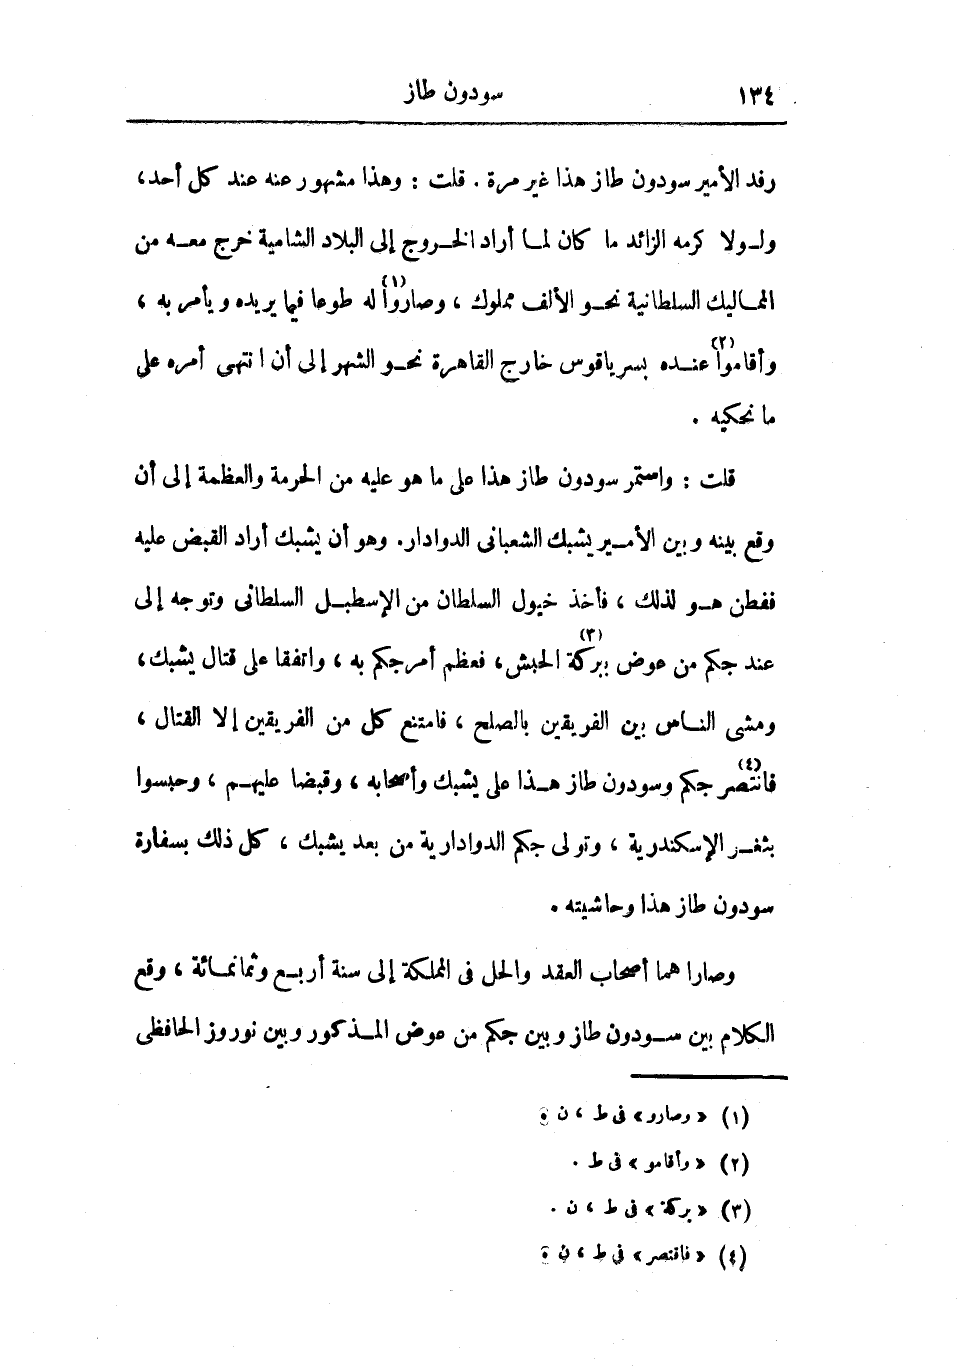 ١٣٤ سودون طاز
رفد الأمير سودون طاز هذا غير مرة . قلت : وهذا مشهور عنه عند كل أحد ،
ولولا كرمه الزائد ما كان لما أراد الخروج إلى البلاد الشامية خرج معه من
المماليك السلطانية نحو الألف مملوك ، وصاروا (١) له طوعا فيما يريده ويأمر به ،
وأقاموا (٢) عنده بسرياقوس خارج القاهرة نحو الشهر إلى أن انتهى أمره على
ما نحكيه .
قلت : واستمر سودون طاز هذا على ما هو عليه من الحرمة والعظمة إلى أن
وقع بينه وبين الأمير يشبك الشعبانى الدوادار. وهو أن يشبك أراد القبض عليه
ففطن هو لذلك ، فأخذ خيول السلطان من الإسطبل السلطانى وتوجه إلى
عند جكم من عوض ببركة (٣) الحبش ، فعظم أمر جكم به ، واتفقا على قتال يشبك ،
ومشى الناس بين الفريقين بالصلح ، فامتنع كل من الفريقين إلا القتال ،
فانتصر (٤) جكم وسودون طاز هذا على يشبك وأصحابه ، وقبضا عليهم ، وحبسوا
بثغر الإسكندرية ، وتولى جكم الدوادارية من بعد يشبك ، كل ذلك بسفارة
سودون طاز هذا وحاشيته .
وصارا هما أصحاب العقد والحل فى المملكة إلى سنة أربع وثمانمائة ، وقع
الكلام بين سودون طاز وبين جكم من عوض المذكور وبين نوروز الحافظى
(١) « وصارو » فى ط ، ن .
(٢) « وأقامو » فى ط .
(٣) « بركة » فى ط ، ن .
(٤) « فاقتصر » فى ط ، ن .